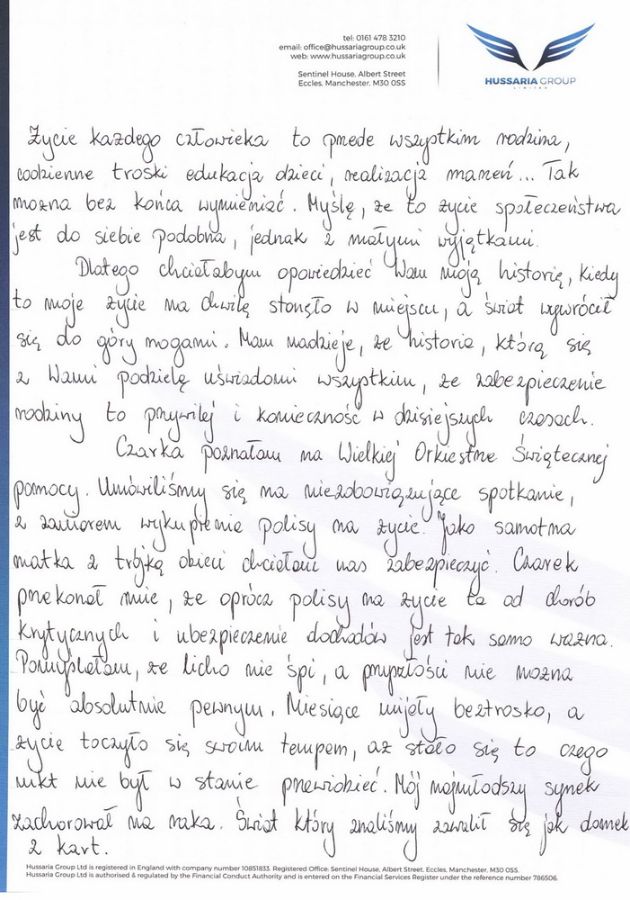 tel: 0161 478 3210
email: office@hussariagroup.co.uk
web: www.hussariagroup.co.uk
Sentinel House, Albert Street
Eccles, Manchester, M30 0SS
HUSSARIA GROUP
LIMITED
Życie każdego człowieka to przede wszystkim rodzina,
codzienne troski edukacja dzieci, realizacja marzeń... Tak
można bez końca wymieniać. Myślę, że to życie społeczeństwa
jest do siebie podobna, jednak z małymi wyjątkami.
Dlatego chciałabym opowiedzieć Wam moją historię, kiedy
to moje życie na chwilę stanęło w miejscu, a świat wywrócił
się do góry nogami. Mam nadzieje, że historia, którą się
z Wami podzielę uświadomi wszystkim, że zabezpieczenie
rodziny to przywilej i konieczność w dzisiejszych czasach.
Czarka poznałam na Wielkiej Orkiestrze Świątecznej
pomocy. Umówiliśmy się na niezobowiązujące spotkanie,
z zamiarem wykupienia polisy na życie. Jako samotna
matka z trójką dzieci chciałam nas zabezpieczyć. Czarek
przekonał mnie, że oprócz polisy na życie ta od chorób
krytycznych i ubezpieczenie dochodów jest tak samo ważna.
Pomyślałam, że licho nie śpi, a przyszłości nie można
być absolutnie pewnym. Miesiące mijały beztrosko, a
życie toczyło się swoim tempem, aż stało się to czego
nikt nie był w stanie przewidzieć. Mój najmłodszy synek
zachorował na raka. Świat który znaliśmy zawalił się jak domek
z kart.
Hussaria Group Ltd is registered in England with company number 10851833. Registered Office: Sentinel House, Albert Street, Eccles, Manchester, M30 0SS.
Hussaria Group Ltd is authorised & regulated by the Financial Conduct Authority and is entered on the Financial Services Register under the reference number 786506.